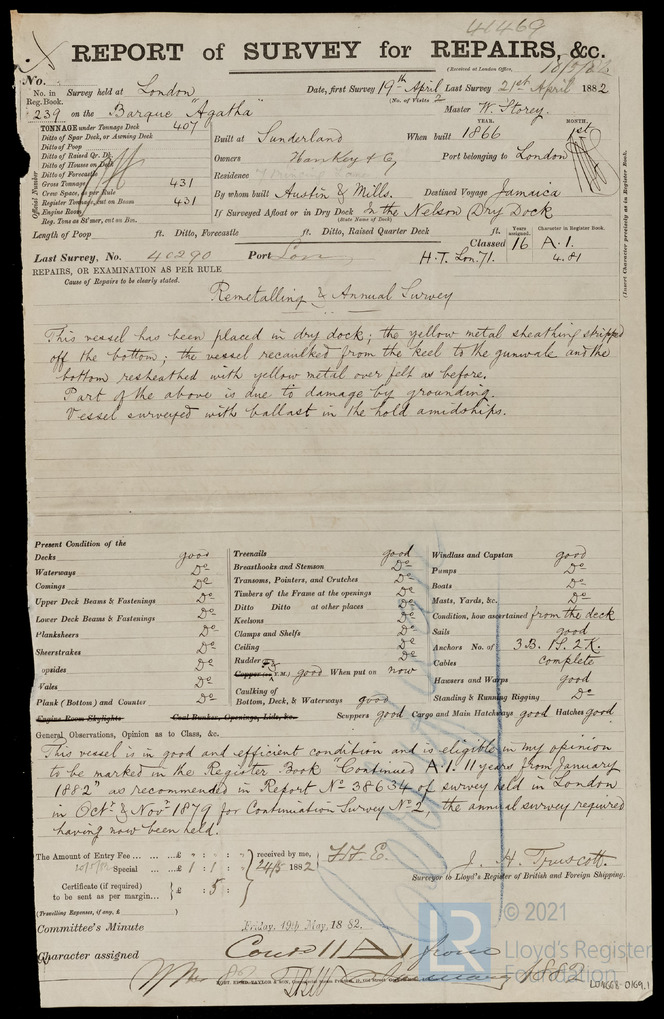 41469
REPORT of SURVEY for REPAIRS, &c.
(Received at London Office,
No.
No. in Reg. Book. Survey held at London Date, first Survey 19th April Last Survey 21st April 1882
(No. of Visits 2
239 on the Barque "Agatha" Master W. Storey.
TONNAGE under Tonnage Deck 407
Ditto of Spar Deck, or Awning Deck
Ditto of Poop
Ditto of Raised Qr. Dk.
Ditto of Houses on Deck
Ditto of Forecastle
Gross Tonnage 431
Crew Space, as per Rule
Register Tonnage, cut on Beam 431
Engine Room
Reg. Tons as St'mer, cut on Bm.
Official Number
Built at Sunderland When built YEAR. 1866 MONTH. 1st
Owners Hankley & Cy Port belonging to London
Residence
By whom built Austin & Mills. Destined Voyage Jamaica
If Surveyed Afloat or in Dry Dock In the Nelson Dry Dock
(State Name of Dock)
(Insert Character precisely as in Register Book.
Length of Poop ft. Ditto, Forecastle ft. Ditto, Raised Quarter Deck ft.
Years assigned. Character in Register Book.
Classed 16 A.1.
Last Survey, No. 40290 Port Lon H.T. Lon. 71. 4.81
REPAIRS, OR EXAMINATION AS PER RULE
Cause of Repairs to be clearly stated.
Remetalling & Annual Survey
This vessel has been placed in dry dock; the yellow metal sheathing stripped
off the bottom; the vessel recaulked from the keel to the gunwale and the
bottom resheathed with yellow metal over felt as before.
Part of the above is due to damage by grounding.
Vessel surveyed with ballast in the hold amidships.
Present Condition of the
Decks good
Waterways Do
Comings Do
Upper Deck Beams & Fastenings Do
Lower Deck Beams & Fastenings Do
Planksheers Do
Sheerstrakes Do
opsides Do
Wales Do
Plank (Bottom) and Counter Do
Engine Room Skylights Coal Bunker, Openings, Lids, &c.
Treenails good
Breasthooks and Stemson Do
Transoms, Pointers, and Crutches Do
Timbers of the Frame at the openings Do
Ditto Ditto at other places Do
Keelsons Do
Clamps and Shelfs Do
Ceiling Do
Rudder Do
Copper (or Y.M.) good When put on now
Caulking of
Bottom, Deck, & Waterways good
Scuppers good Cargo and Main Hatchways good Hatches good
Windlass and Capstan good
Pumps Do
Boats Do
Masts, Yards, &c. Do
Condition, how ascertained from the deck
Sails good
Anchors No. of 3 B. 1 S. 2 K.
Cables complete
Hawsers and Warps good
Standing & Running Rigging Do
General Observations, Opinion as to Class, &c.
This vessel is in good and efficient condition and is eligible in my opinion
to be marked in the Register Book "Continued A.1. 11 years from January
1882" as recommended in Report No 38634 of survey held in London
in Octr & Novr 1879 for Continuation Survey No 2, the annual survey required
having now been held.
The Amount of Entry Fee ... ... ... £ : :
20/5/82 Special ... £ 1 : 1 :
received by me, 24/5 1882 H.E.
Certificate (if required) to be sent as per margin... £ : 5 :
(Travelling Expenses, if any, £ )
J. H. Truscott.
Surveyor to Lloyd's Register of British and Foreign Shipping.
Committee's Minute Friday, 19th May, 1882.
Character assigned Contd 11 A 1 from
January 1882
LR
© 2021
Lloyd's Register
Foundation
LON668-0169.1